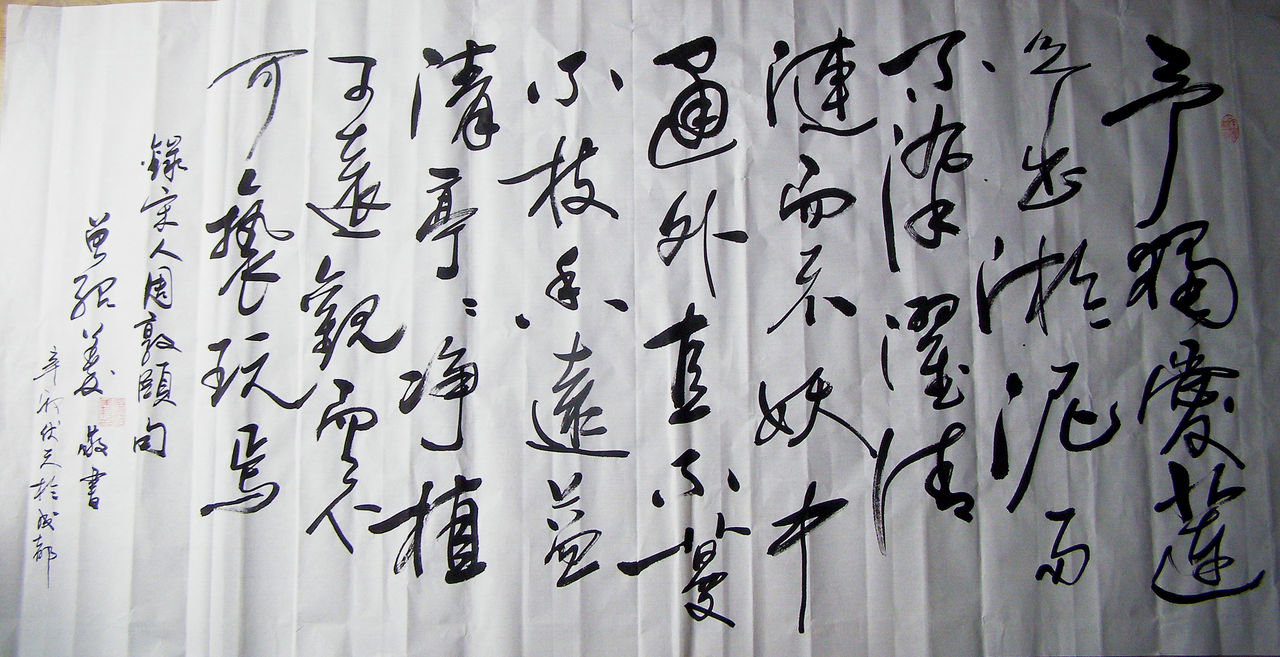 予獨愛蓮
之出淤泥而
不染濯清
漣而不妖中
通外直不蔓
不枝香遠益
清亭〻净植
可遠觀而不
可褻玩焉
錄宋人周敦頤句
曾紹義敬書
辛卯伏天於成都